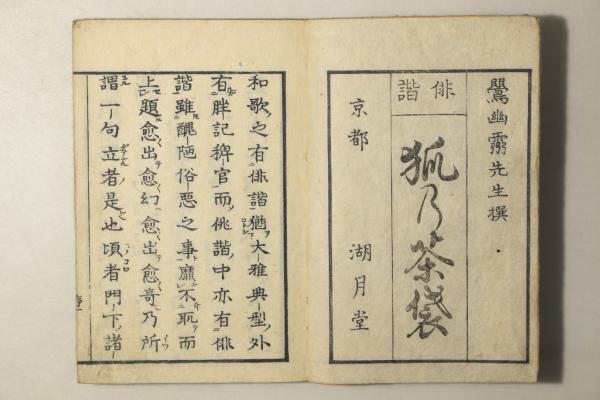 鷺幽霧先生撰
俳諧
狐乃茶袋
京都
湖月堂
和歌之有俳諧猶大雅典型外
有稗記稗官而俳諧中亦有俳
諧雖醜陋俗悪之事靡不甄而
上題愈出愈幻愈出愈奇乃所
謂一句立者是也頃者門下諸